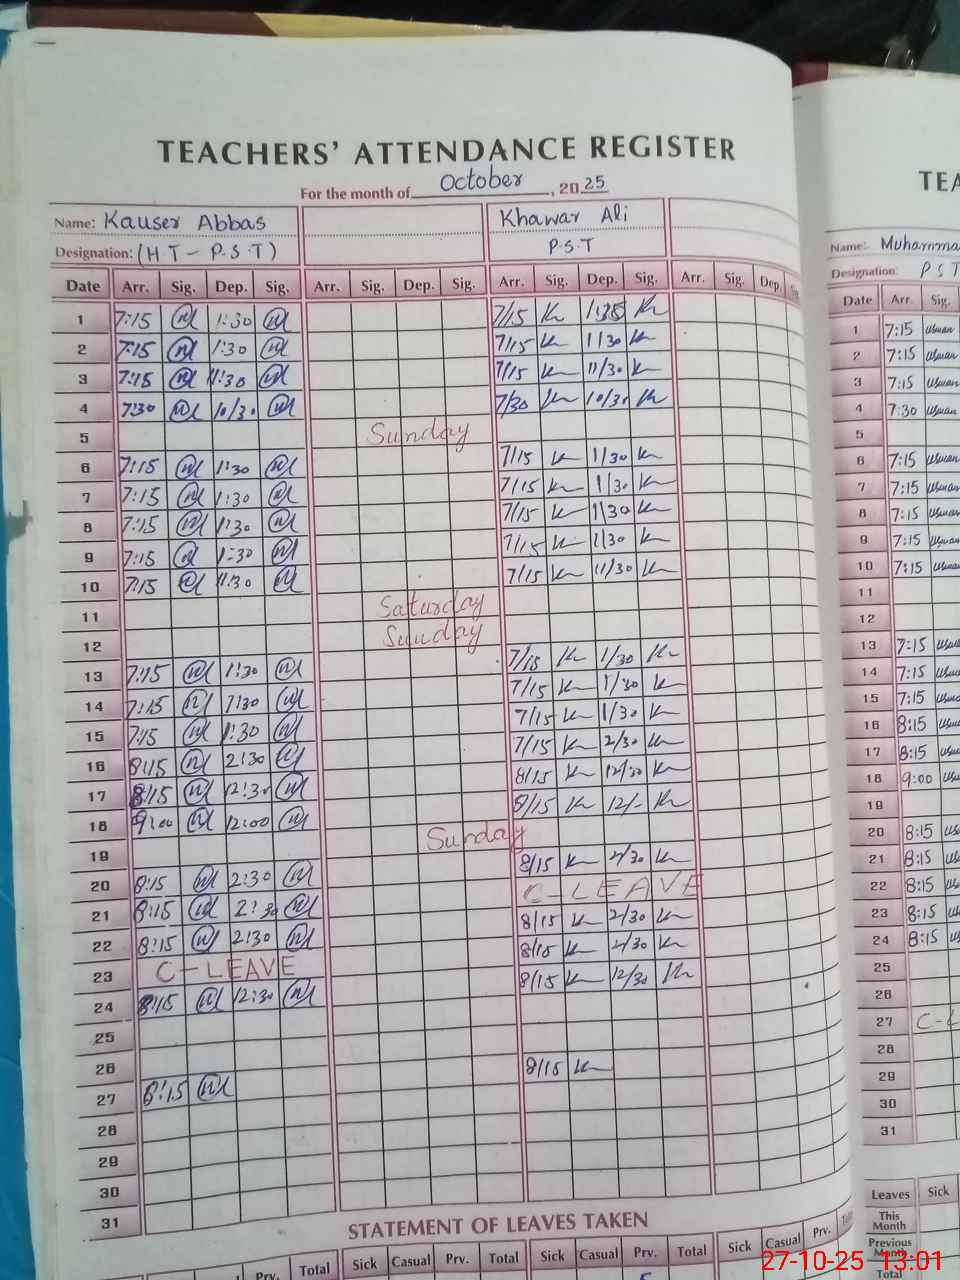 TEACHERS' ATTENDANCE REGISTER
For the month of October, 2025
Name: Kauser Abbas Khawar Ali
Designation: (H T - P.S.T) P.S.T
Date Arr. Sig. Dep. Sig. Arr. Sig. Dep. Sig. Arr. Sig. Dep. Sig. Arr. Sig. Dep.
1 7:15 1:30 7/15
2 7:15 1:30 7/15 1/30
3 7:15 11:30 7/15 11/30
4 7:30 10/30 7/30 10/30
5 Sunday
6 7:15 1:30 7/15 1/30
7 7:15 1:30 7/15 1/30
8 7:15 1:30 7/15 1/30
9 7:15 1:30 7/15 1/30
10 7:15 11:30 7/15 11/30
11 Saturday
12 Sunday
13 7:15 1:30 7/15 1/30
14 7:15 1:30 7/15 1/30
15 7:15 1:30 7/15 1/30
16 8:15 2:30 7/15 2/30
17 8:15 12:30 8/15 12/30
18 9:00 12:00 9/15 12/-
19 Sunday
20 8:15 2:30 8/15 2/30
21 8:15 2:30 C-LEAVE
22 8:15 2:30 8/15 2/30
23 C-LEAVE 8/15 2/30
24 8:15 12:30 8/15 12/30
25
26
27 8:15 8/15
28
29
30
31
STATEMENT OF LEAVES TAKEN
Prv. Total Sick Casual Prv. Total Sick Casual Prv. Total Sick Casual Prv.
TEA
Name: Muhamma
Designation: P S T
Date Arr. Sig.
1 7:15 Usman
2 7:15 Usman
3 7:15 Usman
4 7:30 Usman
5
6 7:15 Usman
7 7:15 Usman
8 7:15 Usman
9 7:15 Usman
10 7:15 Usman
11
12
13 7:15
14 7:15
15 7:15
16 8:15
17 8:15
18 9:00
19
20 8:15
21 8:15
22 8:15
23 8:15
24 8:15
25
26
27 C-L
28
29
30
31
Leaves Sick
This Month
Previous Month
Total
27-10-25 13:01